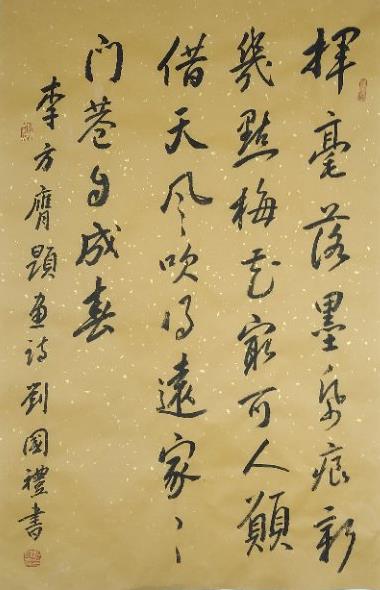 揮毫落墨痕新
幾點梅花最可人願
借天風吹得遠家〻
门巷成春
李方膺題畫詩劉國禮書